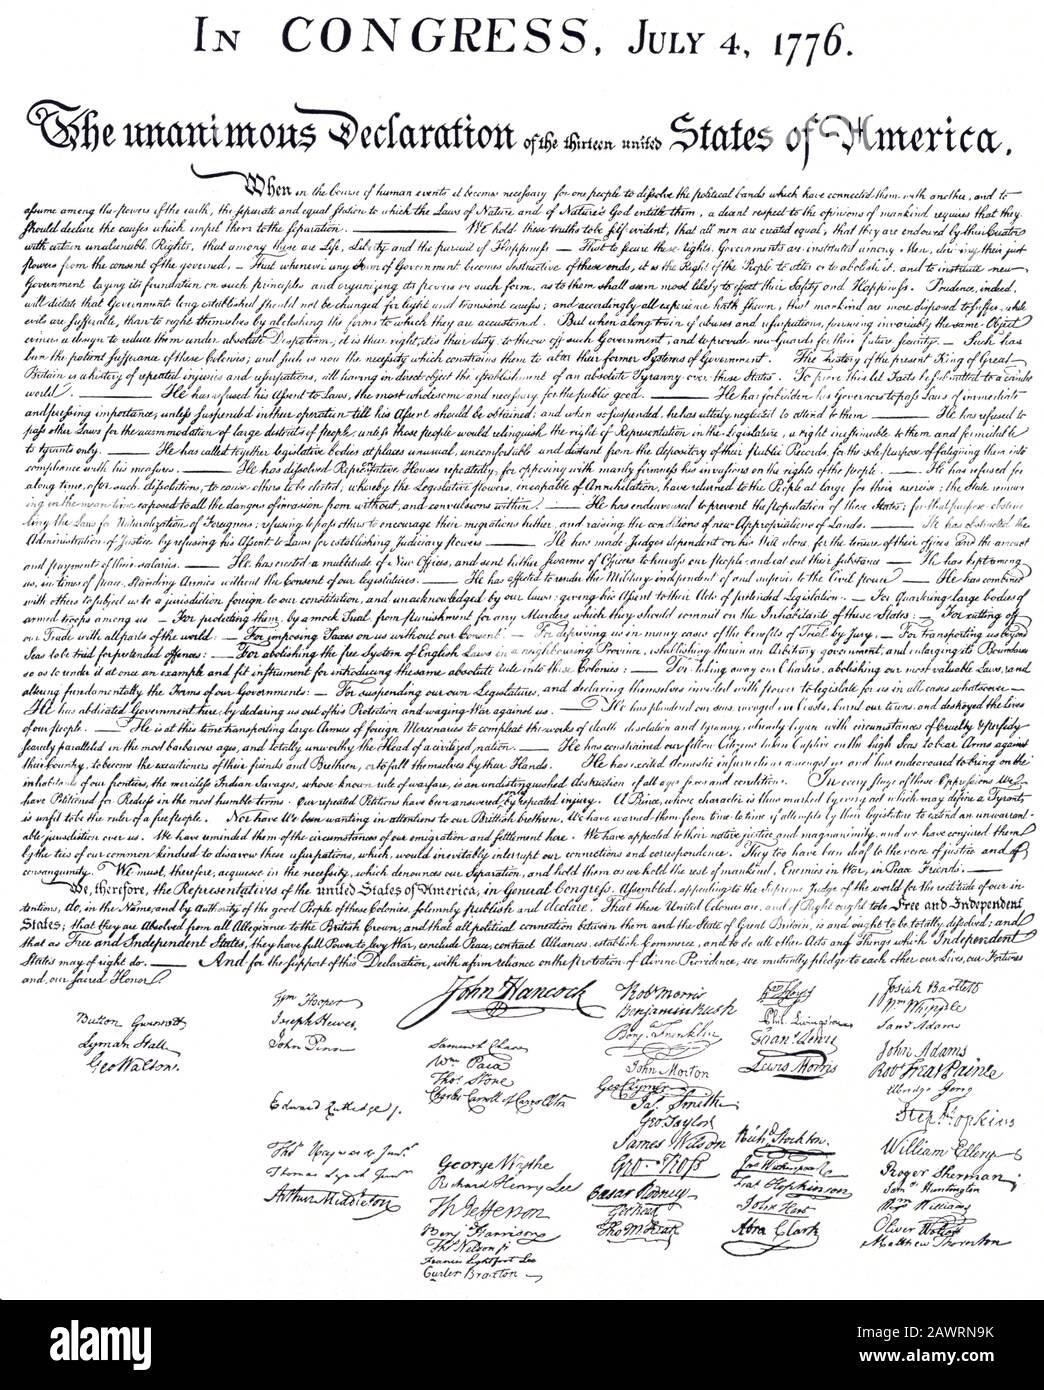 IN CONGRESS, JULY 4, 1776.
The unanimous Declaration of the thirteen united States of America.
When in the Course of human events it becomes necessary for one people to dissolve the political bands which have connected them with another, and to
assume among the powers of the earth, the separate and equal station to which the Laws of Nature and of Nature's God entitle them, a decent respect to the opinions of mankind requires that they
should declare the causes which impel them to the separation. — We hold these truths to be self-evident, that all men are created equal, that they are endowed by their Creator
with certain unalienable Rights, that among these are Life, Liberty and the pursuit of Happiness — That to secure these rights, Governments are instituted among Men, deriving their just
powers from the consent of the governed, — That whenever any Form of Government becomes destructive of these ends, it is the Right of the People to alter or to abolish it, and to institute new
Government laying its foundation on such principles and organizing its powers in such form, as to them shall seem most likely to effect their Safety and Happiness. Prudence, indeed,
will dictate that Governments long established should not be changed for light and transient causes; and accordingly all experience hath shewn, that mankind are more disposed to suffer, while
evils are sufferable, than to right themselves by abolishing the forms to which they are accustomed. But when a long train of abuses and usurpations, pursuing invariably the same Object
evinces a design to reduce them under absolute Despotism, it is their right, it is their duty, to throw off such Government, and to provide new Guards for their future security. — Such has
been the patient sufferance of these Colonies; and such is now the necessity which constrains them to alter their former Systems of Government. The history of the present King of Great
Britain is a history of repeated injuries and usurpations, all having in direct object the establishment of an absolute Tyranny over these States. To prove this let Facts be submitted to a candid
world. — He has refused his Assent to Laws, the most wholesome and necessary for the public good. — He has forbidden his Governors to pass Laws of immediate
and pressing importance, unless suspended in their operation till his Assent should be obtained; and when so suspended, he has utterly neglected to attend to them — He has refused to
pass other Laws for the accommodation of large districts of people, unless those people would relinquish the right of Representation in the Legislature, a right inestimable to them and formidable
to tyrants only. — He has called together legislative bodies at places unusual, uncomfortable and distant from the depository of their Public Records, for the sole purpose of fatiguing them into
compliance with his measures. — He has dissolved Representative Houses repeatedly, for opposing with manly firmness his invasions on the rights of the people. — He has refused for
a long time, after such dissolutions, to cause others to be elected; whereby the Legislative powers, incapable of Annihilation, have returned to the People at large for their exercise; the State remain
ing in the mean time exposed to all the dangers of invasion from without, and convulsions within. — He has endeavoured to prevent the population of these States; for that purpose obstruc
ting the Laws for Naturalization of Foreigners; refusing to pass others to encourage their migrations hither, and raising the conditions of new Appropriations of Lands. — He has obstructed the
Administration of Justice by refusing his Assent to Laws for establishing Judiciary powers — He has made Judges dependent on his Will alone, for the tenure of their offices and the amount
and payment of their salaries. — He has erected a multitude of New Offices, and sent hither swarms of Officers to harrass our people, and eat out their substance — He has kept among
us, in times of peace, Standing Armies without the Consent of our legislatures. — He has affected to render the Military independent of and superior to the Civil power — He has combined
with others to subject us to a jurisdiction foreign to our constitution, and unacknowledged by our laws; giving his Assent to their Acts of pretended Legislation: — For Quartering large bodies of
armed troops among us — For protecting them, by a mock Trial, from punishment for any Murders which they should commit on the Inhabitants of these States: — For cutting off
our Trade with all parts of the world: — For imposing Taxes on us without our Consent: — For depriving us in many cases of the benefits of Trial by Jury, — For transporting us beyond
Seas to be tried for pretended offences: — For abolishing the free System of English Laws in a neighbouring Province, establishing therein an Arbitrary government, and enlarging its Boundaries
so as to render it at once an example and fit instrument for introducing the same absolute rule into these Colonies: — For taking away our Charters, abolishing our most valuable Laws, and
altering fundamentally the Forms of our Governments: — For suspending our own Legislatures, and declaring themselves invested with power to legislate for us in all cases whatsoever —
He has abdicated Government here, by declaring us out of his Protection and waging War against us. — He has plundered our seas, ravaged our Coasts, burnt our towns, and destroyed the lives
of our people. — He is at this time transporting large Armies of foreign Mercenaries to compleat the works of death, desolation and tyranny, already begun with circumstances of Cruelty & perfidy
scarcely paralleled in the most barbarous ages, and totally unworthy the Head of a civilized nation. — He has constrained our fellow Citizens taken Captive on the high Seas to bear Arms against
their Country, to become the executioners of their friends and Brethren, or to fall themselves by their Hands. He has excited domestic insurrections amongst us, and has endeavoured to bring on the
inhabitants of our frontiers, the merciless Indian Savages, whose known rule of warfare, is an undistinguished destruction of all ages sexes and conditions. In every stage of these Oppressions We
have Petitioned for Redress in the most humble terms: Our repeated Petitions have been answered only by repeated injury. A Prince, whose character is thus marked by every act which may define a Tyrant,
is unfit to be the ruler of a free people. Nor have We been wanting in attentions to our Brittish brethren. We have warned them from time to time of attempts by their legislature to extend an unwarrant-
able jurisdiction over us. We have reminded them of the circumstances of our emigration and settlement here. We have appealed to their native justice and magnanimity, and we have conjured them
by the ties of our common kindred to disavow these usurpations, which, would inevitably interrupt our connections and correspondence. They too have been deaf to the voice of justice and of
consanguinity. We must, therefore, acquiesce in the necessity, which denounces our Separation, and hold them as we hold the rest of mankind, Enemies in War, in Peace Friends. —
We, therefore, the Representatives of the united States of America, in General Congress, Assembled, appealing to the Supreme Judge of the world for the rectitude of our in
tentions, do, in the Name, and by Authority of the good People of these Colonies, solemnly publish and declare, That these United Colonies are, and of Right ought to be Free and Independent
States; that they are Absolved from all Allegiance to the British Crown, and that all political connection between them and the State of Great Britain, is and ought to be totally dissolved; and
that as Free and Independent States, they have full Power to levy War, conclude Peace, contract Alliances, establish Commerce, and to do all other Acts and Things which Independent
States may of right do. — And for the support of this Declaration, with a firm reliance on the protection of divine Providence, we mutually pledge to each other our Lives, our Fortunes
and our sacred Honor.
Button Gwinnett
Lyman Hall
Geo Walton.
Wm Hooper
Joseph Hewes,
John Penn
Edward Rutledge
Thos Heyward Junr.
Thomas Lynch Junr.
Arthur Middleton
John Hancock
Samuel Chase
Wm Paca
Thos Stone
Charles Carroll of Carrollton
George Wythe
Richard Henry Lee
Th Jefferson
Benj Harrison
Thos Nelson jr
Francis Lightfoot Lee
Carter Braxton
Robt Morris
Benjamin Rush
Benja Franklin
John Morton
Geo Clymer
Jas Smith
Geo Taylor
James Wilson
Geo. Ross
Caesar Rodney
Geo Read
Tho M:Kean
Wm Floyd
Phil. Livingston
Frans Lewis
Lewis Morris
Richd Stockton
Jno Witherspoon
Fras Hopkinson
John Hart
Abra Clark
Josiah Bartlett
Wm Whipple
Saml Adams
John Adams
Robt Treat Paine
Elbridge Gerry
Step Hopkins
William Ellery
Roger Sherman
Sam Huntington
Wm Williams
Oliver Wolcott
Matthew Thornton
alamy
Image ID: 2AWRN9K
www.alamy.com